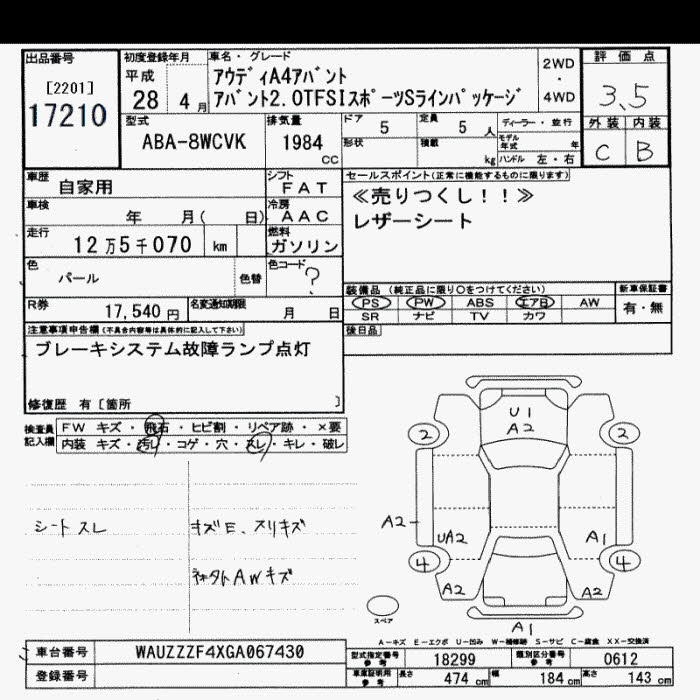 出品番号
[2201]
17210
初度登録年月
平成
28 4 月
車名・グレード
アウディA4アバント
アバント2.0TFSIスポーツSラインパッケージ
2WD
・
4WD
評価点
3.5
外装 内装
C B
型式
ABA-8WCVK
排気量
1984
CC
ドア 5
定員 5 人
ディーラー・並行
形状
積載 kg
モデル年式 年
ハンドル 左・右
車歴
自家用
シフト
FAT
セールスポイント(正常に機能するものに限ります)
≪売りつくし!!≫
レザーシート
車検
年 月( 日)
冷房
AAC
走行
12万5千070 km
燃料
ガソリン
色
パール
色替
色コード
?
装備品 (純正品に限り○をつけてください)
PS PW ABS エアB AW
SR ナビ TV カワ
新車保証書
有・無
R券
17,540 円
名変通知期限
月 日
後日品
注意事項申告欄(不具合内容等は具体的に記入して下さい)
ブレーキシステム故障ランプ点灯
修復歴 有[箇所 ]
検査員
記入欄
FW キズ・飛石・ヒビ割・リペア跡・×要
内装 キズ・汚れ・コゲ・穴・スレ・キレ・破レ
シートスレ
キズE、スリキズ
AWキズ
U1
A2
2 2
A2
UA2 A1
4 4
A2 A2
スペア
A1
A-キズ E-エクボ U-凹み W-補修跡 S-サビ C-腐食 XX-交換済
車台番号
WAUZZZF4XGA067430
登録番号
型式指定番号
参考
18299
類別区分番号
参考
0612
車車証明用
参考
長さ 474 cm
幅 184 cm
高さ 143 cm